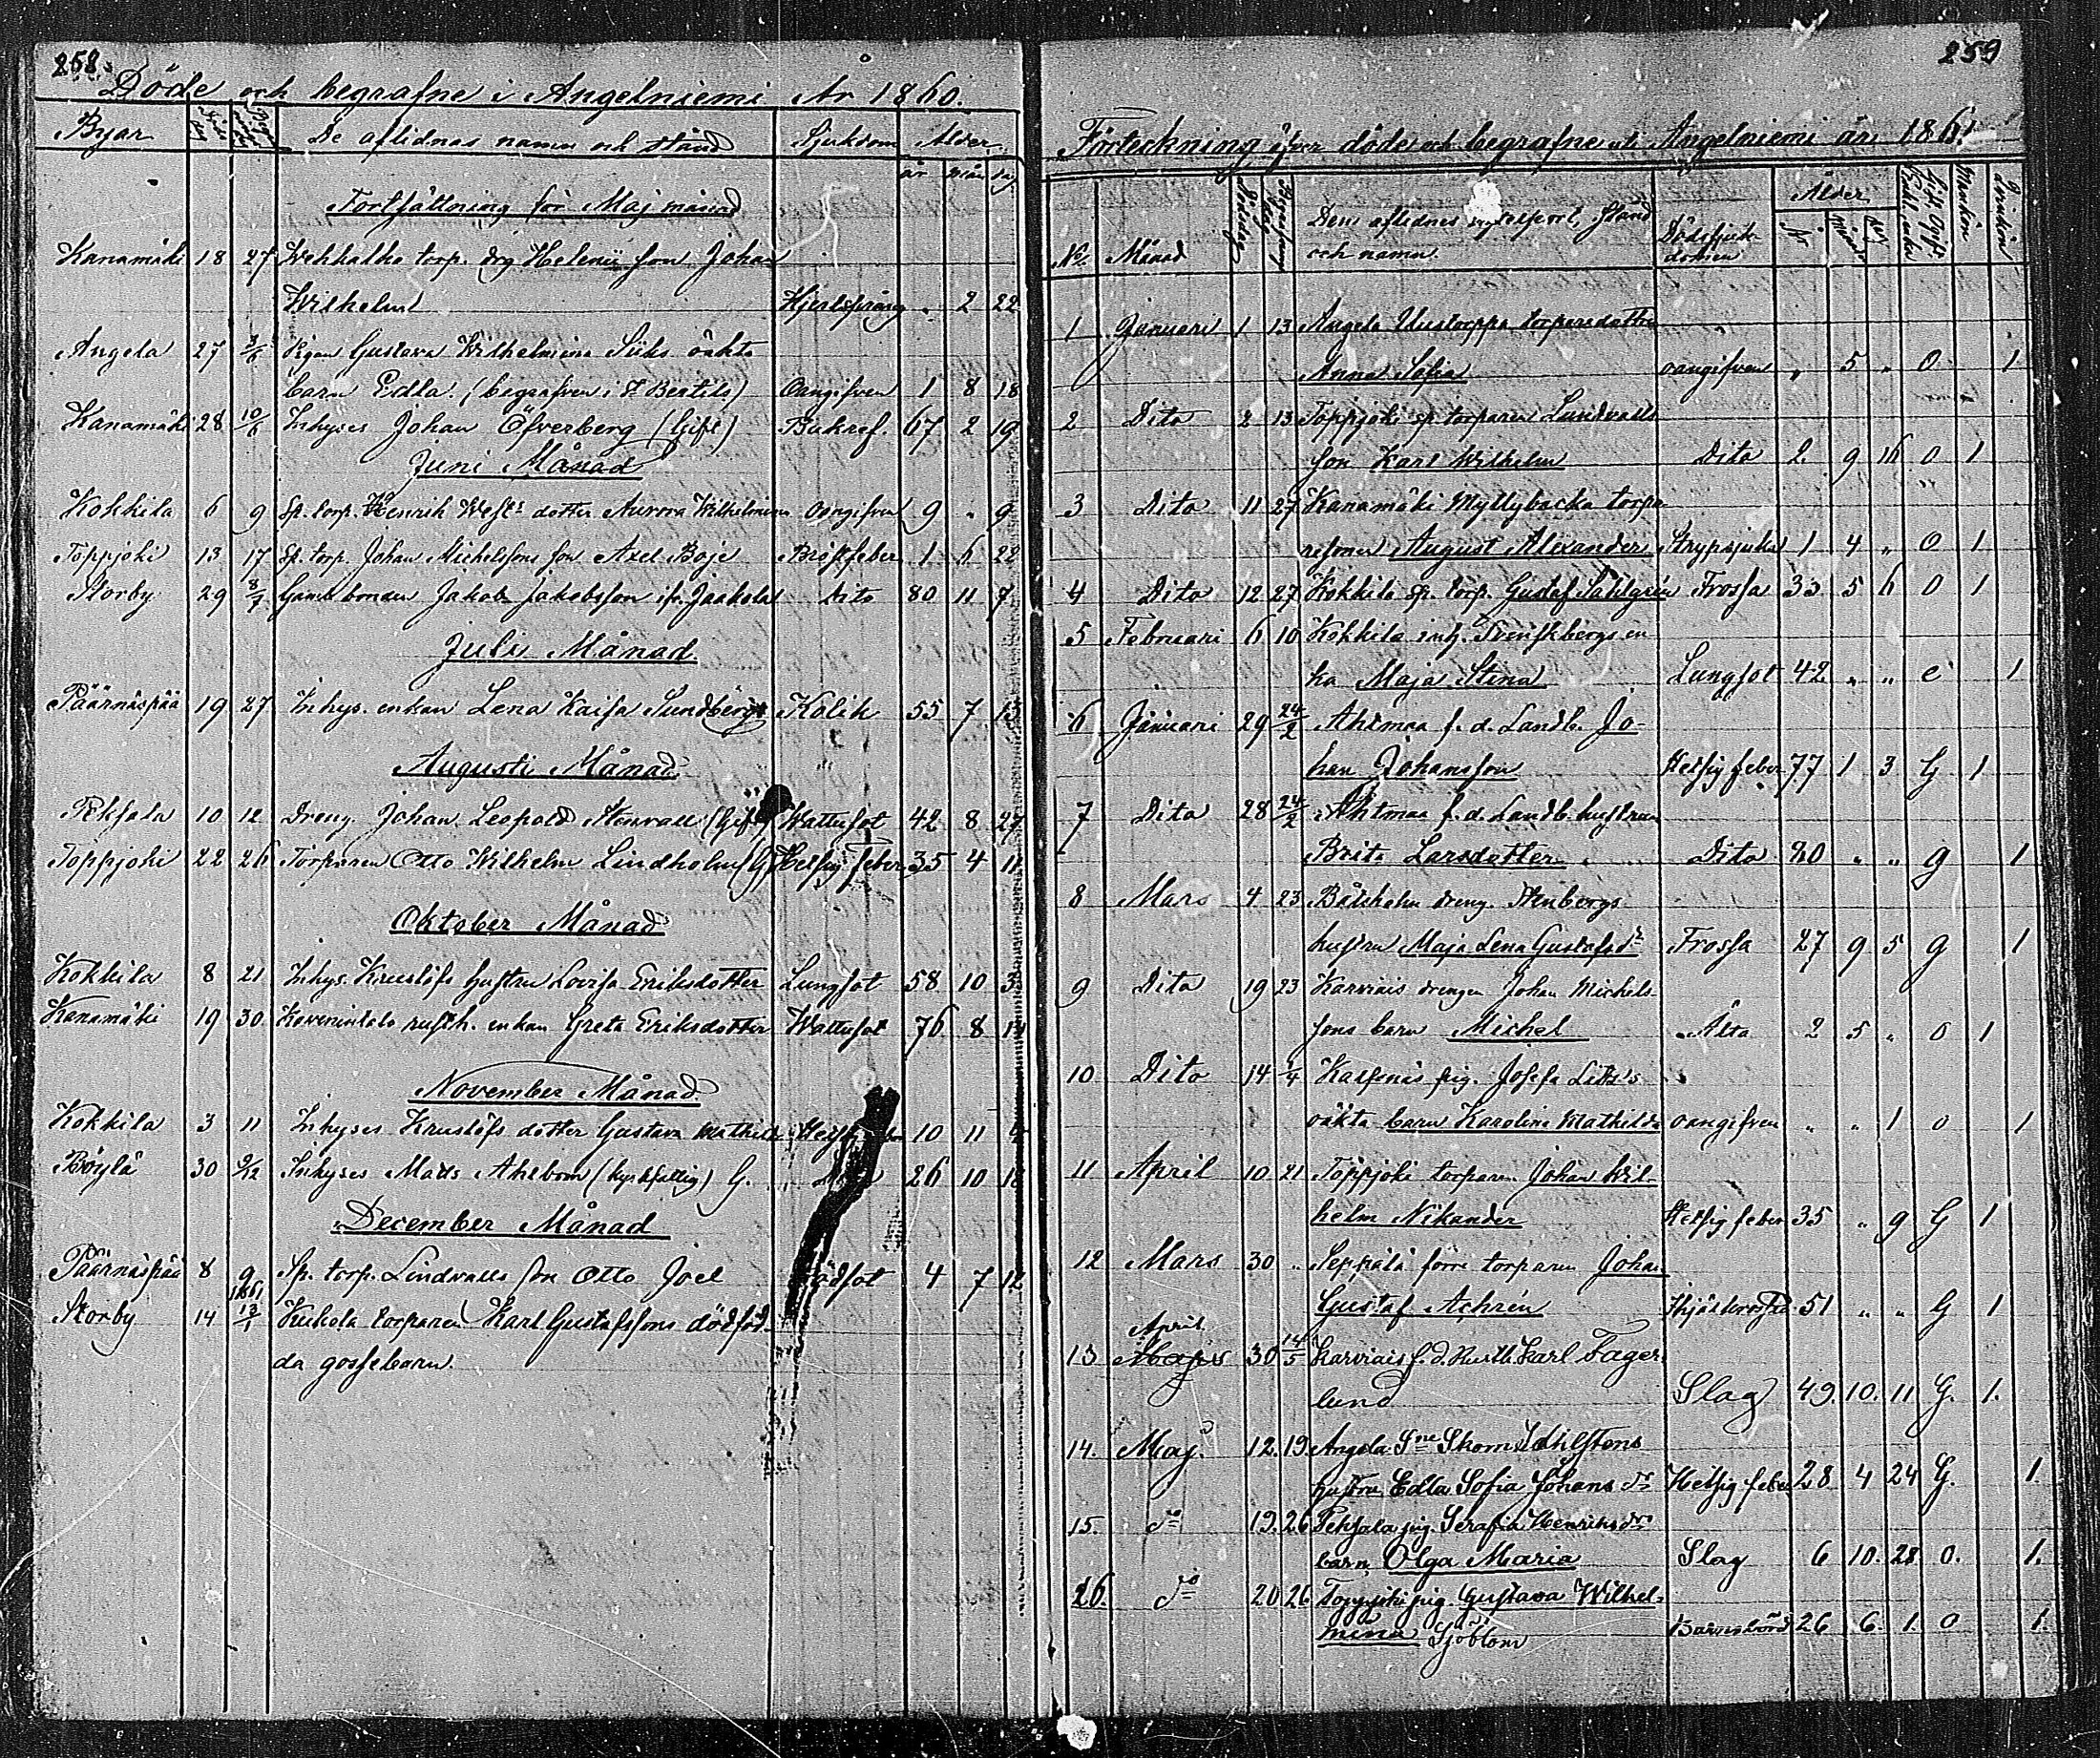 258
Döde och begrafne i Angelniemi År 1860.
Byar De aflidnas namn och stånd Sjukdom Ålder
år mån dag
Fortsättning för Maj månad
Kanamäki 18 27 torp. drg Helenii son Johan
Wilhelm Hjertsprång " 2 22
Angela 27 3/6 Pigan Gustava Wilhelmina Siiks oäkta
barn Edla. (begrafven i St Bertils) Oangifven 1 8 18
Kanamäki 28 10/6 Inhyses Johan Öfverberg (Gift) 67 2 19
Juni Månad
Kokkila 6 9 Sp. torp. Henrik Wests dotter Aurora Wilhelmina Oangifven 9 " 9
Toppjoki 13 17 Sp. torp. Johan Michelssons son Axel Boje Bröstfeber 1 6 22
Storby 29 8/7 Gamla bonden Jakob Jakobsson ifr. Jaakola Dito 80 11 7
Juli Månad
Päärnäspää 19 27 Inhys. enkan Lena Kaisa Sundberg Kolik 55 7 15
Augusti Månad
Peksala 10 12 Dreng. Johan Leopold Stenvall (Gift) Wattusot 42 8 27
Toppjoki 22 26 Torparen Otto Wilhelm Lindholm (G) Hetsig feber 35 4 11
Oktober Månad
Kokkila 8 21 Inhys. Krustöfs hustru Lovisa Eriksdotter Lungsot 58 10 3
Kanamäki 19 30 rusth. enkan Greta Eriksdotter Wattusot 76 8 14
November Månad
Kokkila 3 11 Inhyses Krustöfs dotter Gustava Mathild 10 11 4
Pöylä 30 9/12 Inhyses Matts Ahlbom (kyrkfattig) G. 26 10 18
December Månad
Päärnäspää 8 9 Sp. torp. Lindvalls son Otto Joel 4 7 12
1861
Storby 14 13/1 Kukola torparen Karl Gustafssons dödföd
da gossebarn.
259
Förteckning öfver döde och begrafne uti Angelniemi år 1861.
No. Månad Dödsdag Begrafningsdag Den aflidnes stånd Dödssjuk- Ålder
och namn. domen År Månad Dag
1 Januari 1 13 Angela Uustorppa torparedotter
Anna Sofia oangifven " 5 " O 1
2 Dito 2 13 Toppjoki sp. torparen Lundvalls
son Karl Wilhelm Dito 2 9 16 O 1
3 Dito 11 27 Kanamäki Myllybacka torpa
resonen August Alexander Strypsjuka 1 4 " O 1
4 Dito 12 27 Kokkila sp. torp. Gustaf Sahlgrén Frossa 33 5 6 O 1
5 Februari 6 10 Kokkila inh. Svenskbergs en
ka Maja Stina Lungsot 42 " " e 1
6 Januari 29 24/2 Ahtmaa f. d. Landb. Jo-
han Johansson Hetsig feber 77 1 3 G 1
7 Dito 28 24/2 Ahtmaa f. d. Landb. hustrun
Brita Larsdotter Dito 80 " " g 1
8 Mars 4 23 Båtsholm dreng. Stenbergs
hustru Maja Lena Gustafsdr Frossa 27 9 5 g 1
9 Dito 19 23 Karviais drengen Johan Michels-
sons barn Michel Älta 2 5 " O 1
10 Dito 14 1/4 pig. Josefa
oäkta barn Karolina Mathilda oangifven " " 1 O 1
11 April 10 21 Toppjoki torparen Johan Wil-
helm Nikander Hetsig feber 35 " 9 G 1
12 Mars 30 " Seppälä förre torparen Johan
Gustaf Achrén 51 " " G 1
April
13 30 14/5 Karviais f. d. Rusth. Karl Fager
lund Slag 49. 10. 11 G. 1.
14. Maj. 12. 19 Angela Sne Skom. Dahlstens
hustru Edla Sofia Johansdr Hetsig feber 28 4 24 G. 1.
15. do 19. 26 Peksala pig. Serafia Henriksdrs
barn Olga Maria Slag 6 10. 28 O. 1.
26. do 20 26 Toppjoki pig. Gustava Wilhel-
mina Sjöblom Barnsbörd 26 6. 1. O 1.